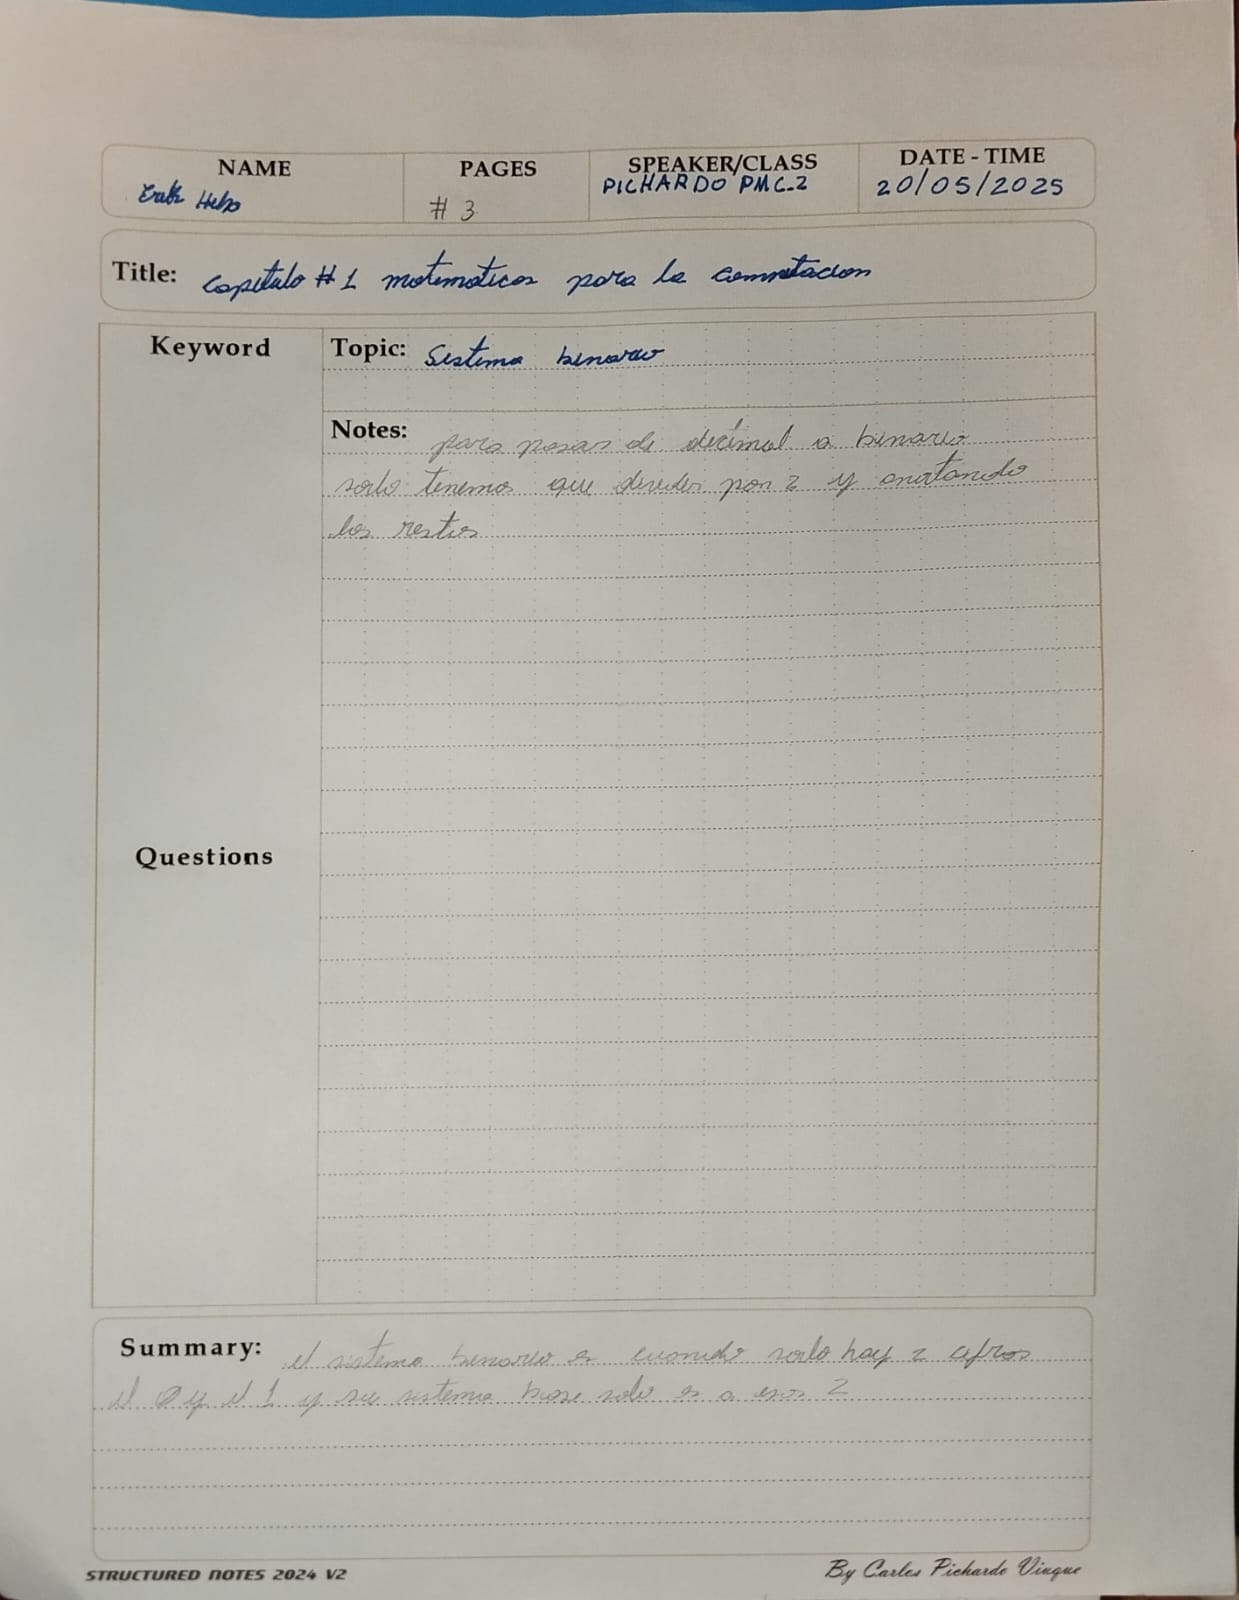 NAME
PAGES
# 3
SPEAKER/CLASS
PICHARDO PMC-2
DATE - TIME
20/05/2025
Title: capitulo # 1 matematicas para la
Keyword
Topic: Sistema binario
Notes: para pasar de decimal a binario
solo tenemos que dividir por 2 y anotando
los restos
Questions
Summary: el sistema binario es cuando solo hay 2 cifras
el 0 y el 1 y su sistema base solo es a esos 2
STRUCTURED NOTES 2024 V2
By Carlos Pichardo Viuque